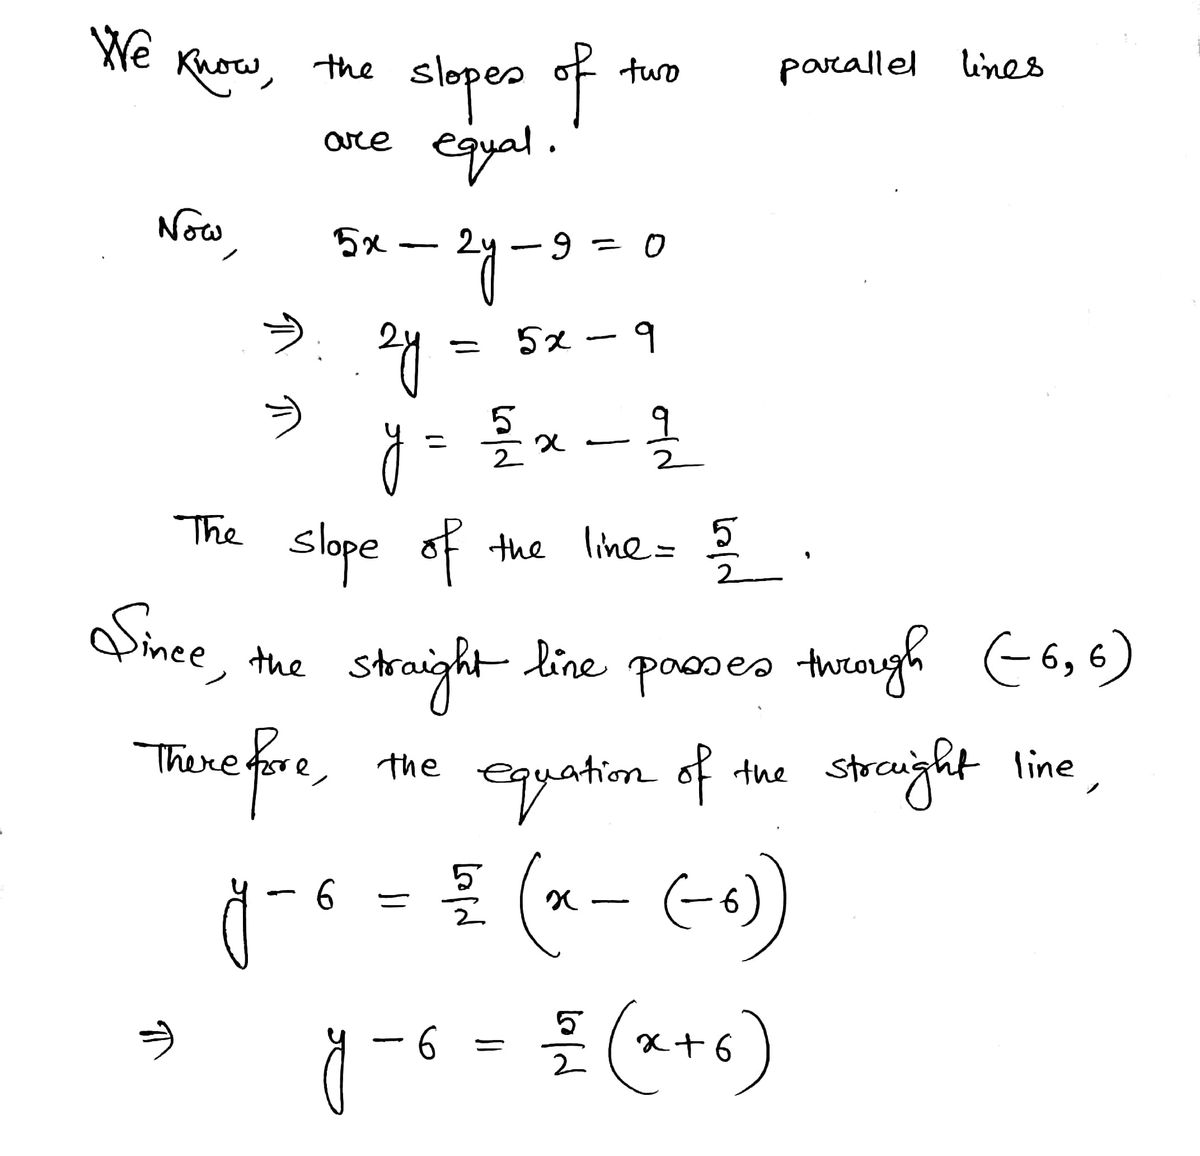 We Know, the slopes of two parallel lines
are equal.
Now, 5x - 2y - 9 = 0
⇒ 2y = 5x - 9
⇒ y = 5/2 x - 9/2
The slope of the line = 5/2 .
Since, the straight line passes through (-6, 6)
Therefore, the equation of the straight line,
y - 6 = 5/2 (x - (-6))
⇒ y - 6 = 5/2 (x + 6)